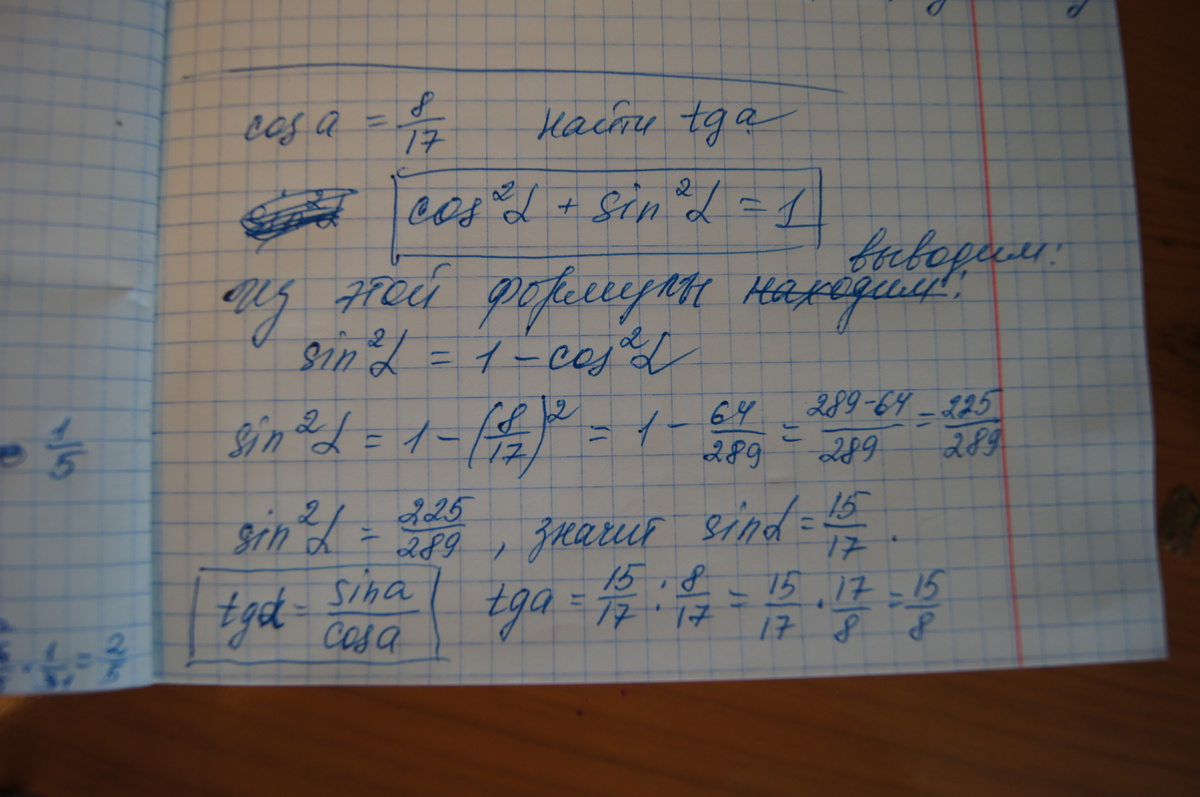 cos a = 8/17 найти tg a
cos²α + sin²α = 1
выводим:
из этой формулы находим:
sin²α = 1 - cos²α
sin²α = 1 - (8/17)² = 1 - 64/289 = 289-64/289 = 225/289
1/5
sin²α = 225/289, значит sinα = 15/17.
tgα = sin a/cos a tg a = 15/17 : 8/17 = 15/17 · 17/8 = 15/8
= 2/5